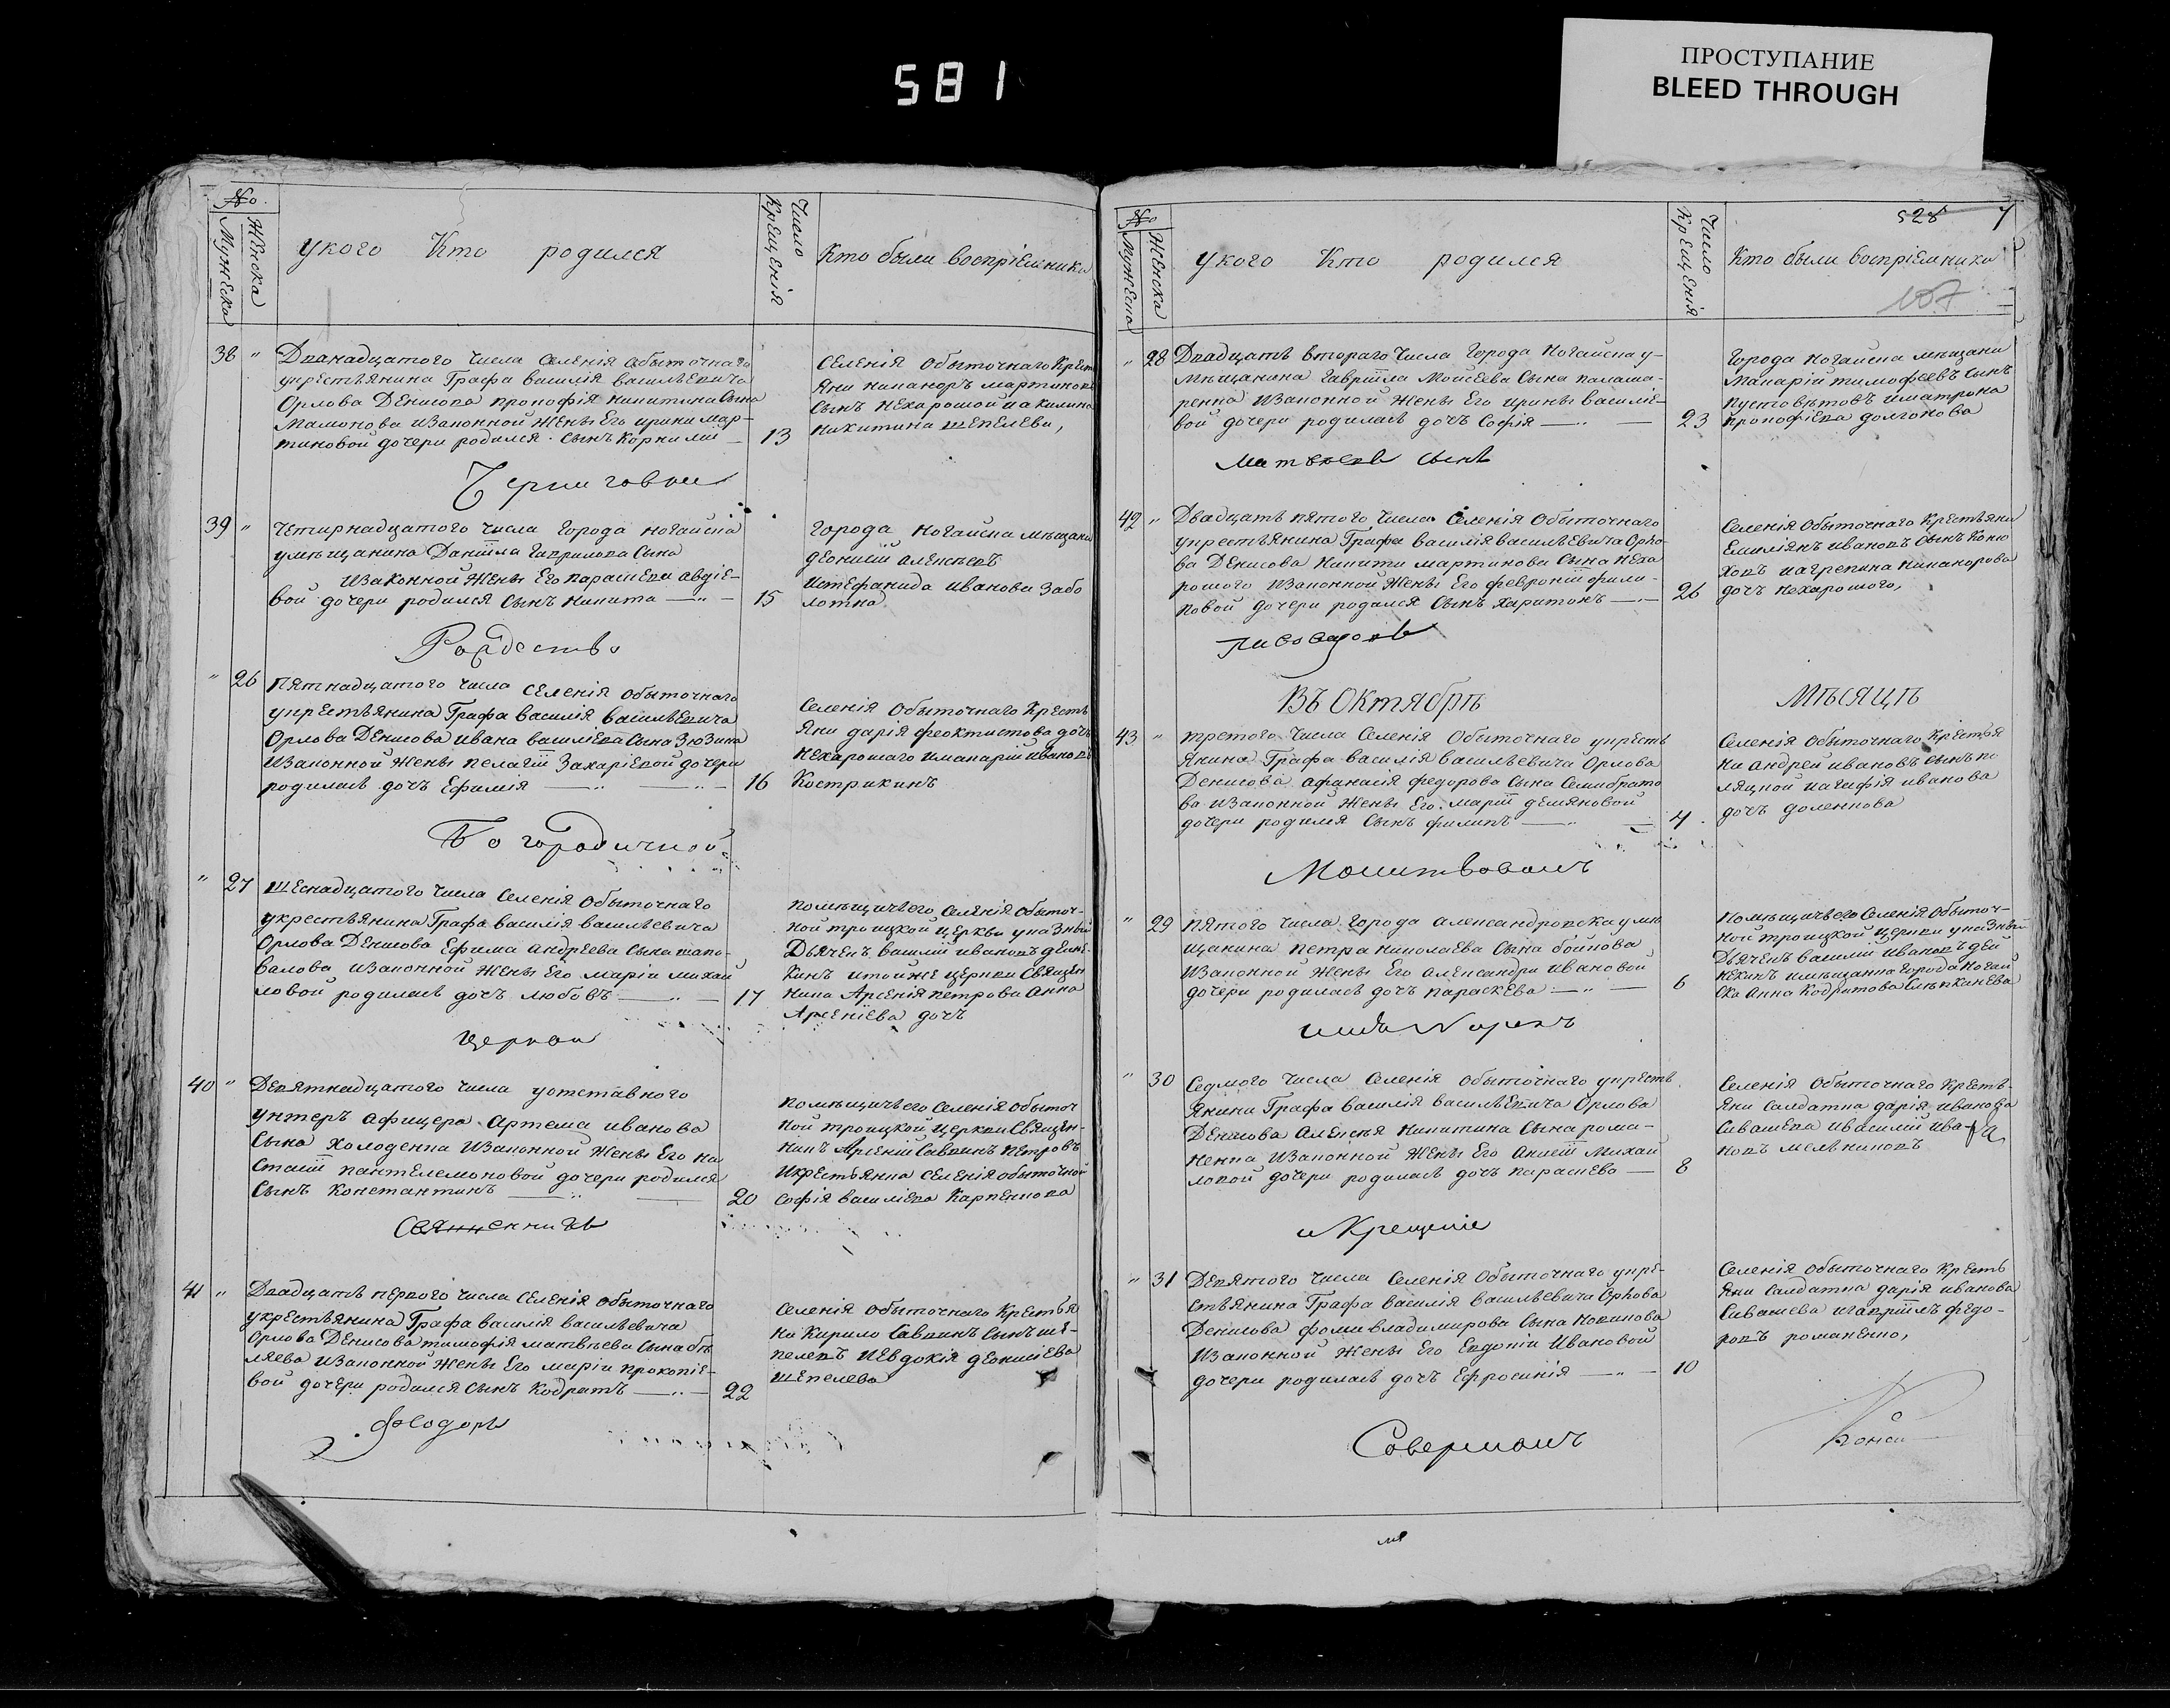 581
ПРОСТУПАНИЕ
BLEED THROUGH
№
Мужеска
Женска
у кого Кто родился
Число Крещенія
Кто были воспріемники
38 "
Дванадцатого Числа Селенія Обыточнаго
укрестьянина Графа василія васильевича
Орлова Денисова прокофія Никитина Сына
Мамонова Изаконной Жены Его ирини мар-
тиновой дочери родился Сынъ Корнилій
13
Селенія Обыточнаго Крест
Яни никаноръ мартинова
Сынъ Нехарошой иакилина
Никитина шепелева,
39 "
Четирнадцатого Числа Города Ногайска
умѣщанина Даніила Гаврилова Сына
Изаконной Жены Его параскеви авдіе-
вой дочери родился Сынъ Никита
15
Города Ногайска мѣщани
деонисій алексѣевъ
истефанида иванова Забо
лотна
Рождество
" 26
Пятнадцатого Числа Селенія Обыточнаго
укрестьянина Графа василія васильевича
Орлова Денисова ивана василіева Сына Зюзина
Изаконной Жены пелагіи Захаріевой дочери
родилась дочъ Ефимія
16
Селенія Обыточнаго Кресть
Яни дарія феоктистова дочъ
Нехарошаго имакарій ивановъ
Кострикинъ
Богородичной
" 27
шеснадцатого Числа Селенія Обыточнаго
укрестьянина Графа василія васильевича
Орлова Денисова Ефима андреева Сына шапо-
валова изаконной Жены Его маріи михай
ловой родилась дочъ любовъ
17
помѣщичьего Селенія Обыточ-
ной троицкой церкви указный
Дьячекъ василій ивановъ дейне-
кинъ итойже церкви Священ
ника Арсенія петрова Анна
Арсеніева дочъ
церкви
40 "
Девятнадцатого Числа уотставного
унтеръ афицера Артема иванова
Сына Холоденка Изаконной Жены Его на
стасіи пантелемоновой дочери родился
Сынъ Константинъ
20
помѣщичьего Селенія Обыточ
ной троицкой церкви Священ-
никъ Арсеній Саввинъ петровъ
икрестьянка Селенія обыточной
Софія василіева Карпенкова
Священникъ
41 "
Двадцать первого Числа Селенія Обыточнаго
укрестьянина Графа василія васильевича
Орлова Денисова тимофія матвѣева Сына бѣ
ляева Изаконной Жены Его маріи прокопіе-
вой дочери родился Сынъ Кодратъ
22
Селенія обыточнаго Крестья
Ни Кирило Саввинъ Сынъ ше-
пелевъ иЕвдокія деонисіева
шепелева
Феодоръ
№
Мужеска
Женска
у кого Кто родился
Число Крещенія
528 7
Кто были воспріемники
107
" 28
Двадцать втораго Числа Города Ногайска у-
мѣщанина Гавріила Моисеева Сына палама-
ренка изаконной Жены Его ирины василіе-
вой дочери родилась дочъ Софія
23
Города Ногайска мѣщани
Макарій тимофеевъ Сынъ
пустовѣтовъ иматрона
прокофіева долгонова
Матвѣевъ Сынъ
42 "
Двадцать пятого Числа Селенія Обыточнаго
укрестьянина Графа василія васильевича Орло-
ва Денисова Никити мартинова Сына Неха
рошого изаконной Жены Его февроніи фили-
повой дочери родился Сынъ Харитонъ
26
Селенія Обыточнаго Крестьяни
Емиліянъ ивановъ Сынъ Коню
ховъ иагрепина Никанорова
дочъ Нехарошого,
Пивоваровъ
Въ Октябрѣ Мѣсяцѣ
43 "
третого Числа Селенія Обыточнаго укресть
янина Графа василія васильевича Орлова
Денисова афанасія федорова Сына Семибрато
ва Изаконной Жены Его маріи демяновой
дочери родился Сынъ филипъ
4
Селенія Обыточнаго Крестья
Ни андрей ивановъ Сынъ по
ляцкой иагафія иванова
дочъ доленкова
Молитвовалъ
" 29
пятого Числа Города александровска умѣ
щанина петра николаева Сына бойкова
Изаконной Жены Его александри ивановой
дочери родилась дочъ параскева
6
помѣщичьего Селенія Обыточ-
ной троицкой церкви указный
Дьячекъ василій ивановъ дей
некинъ имѣщанка Города Ногай
ска Анна Кодратова
" 30
Седмого Числа Селенія обыточнаго укресть
янина Графа василія васильевича Орлова
Денисова Алексѣя Никитина Сына рома-
ненка изаконной Жены Его Анисіи Михай
ловой дочери родилась дочъ параскева
8
Селенія Обыточнаго Кресть-
яни Салдатка дарія иванова
Сивашева ивасилій ива-
новъ мелѣниковъ
и Крещеніе
" 31
Девятого Числа Селенія Обыточнаго укре-
стьянина Графа василія васильевича Орлова
Денисова фоми владимирова Сына Новикова
Изаконной Жены Его Евдокіи Ивановой
дочери родилась дочъ Ефросинія
10
Селенія Обыточнаго Кресть
яни Салдатка дарія иванова
Сивашева игавріилъ федо-
ровъ романенко,
Совершалъ